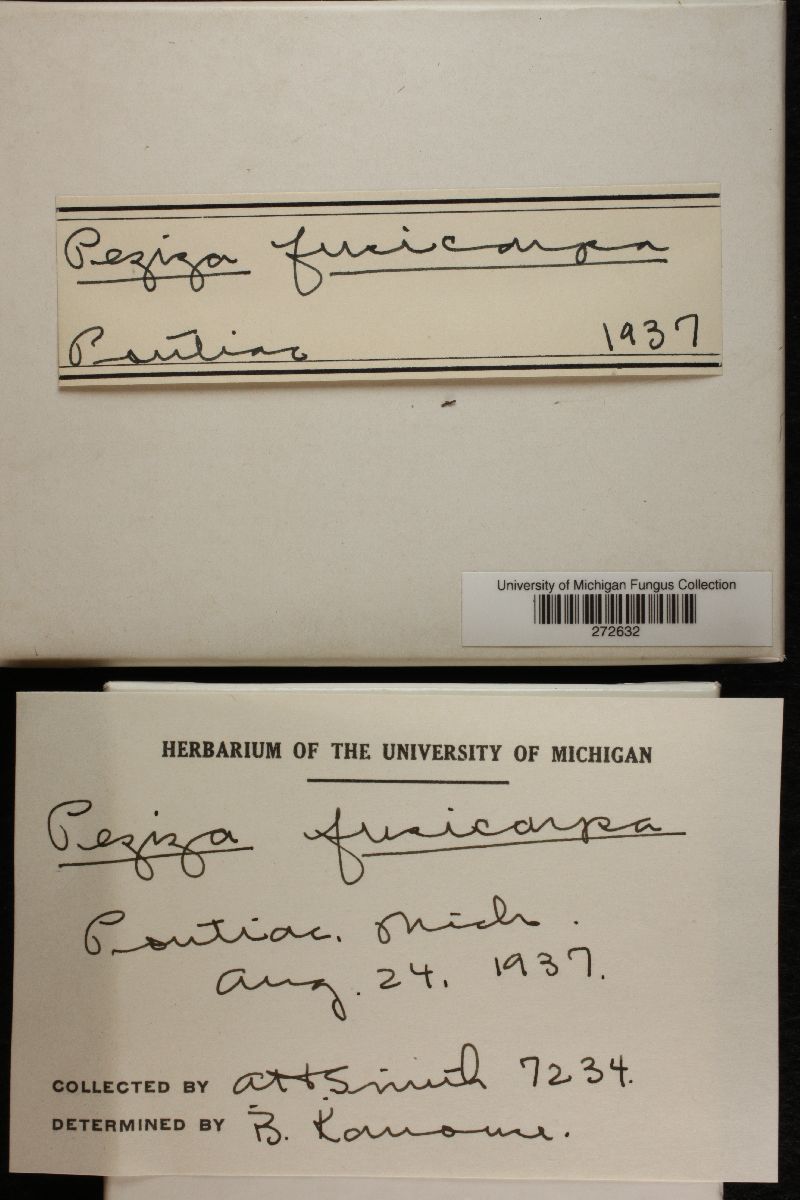 Peziza fusicarpa
Pontiac 1937
University of Michigan Fungus Collection
272632
HERBARIUM OF THE UNIVERSITY OF MICHIGAN
Peziza fusicarpa
Pontiac, Mich.
Aug. 24, 1937.
COLLECTED BY AHSmith 7234.
DETERMINED BY B. Kanouse.